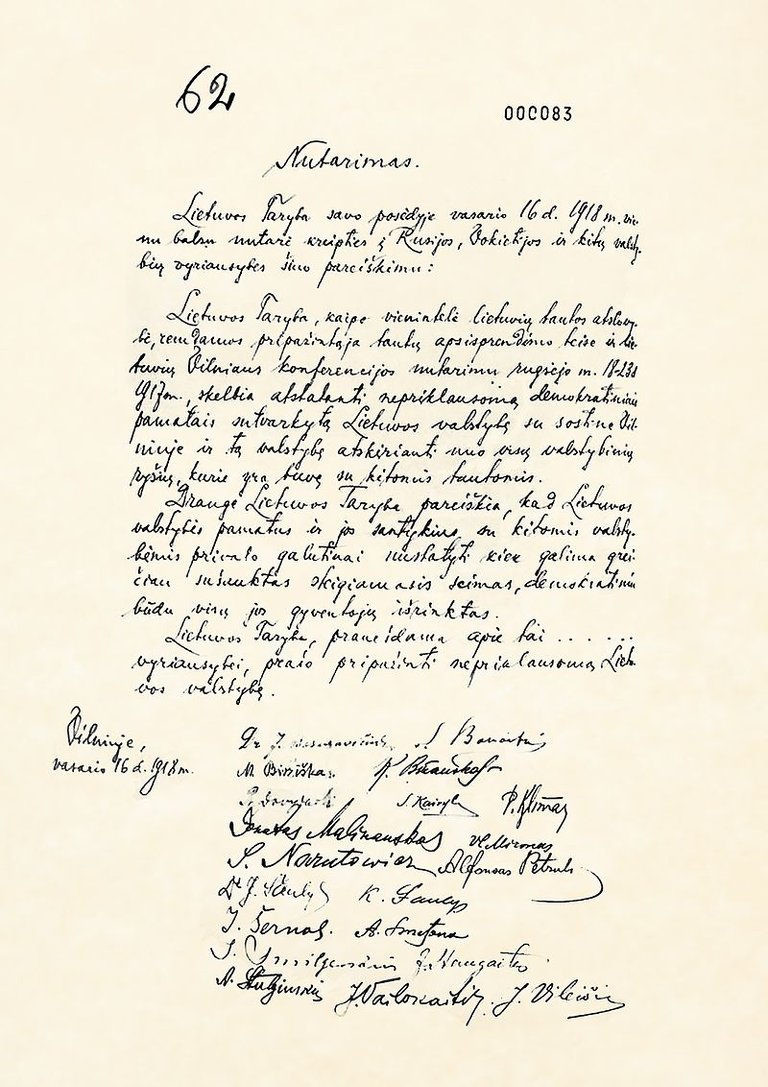 62
000083
Nutarimas.
Lietuvos Taryba savo posėdyje vasario 16 d. 1918 m. vie-
nu balsu nutarė kreipties į Rusijos, Vokietijos ir kitų valsty-
bių vyriausybes šiuo pareiškimu:
Lietuvos Taryba, kaipo vienintelė lietuvių tautos atstovy-
bė, remdamos pripažintąja tautų apsisprendimo teise ir lie-
tuvių Vilniaus konferencijos nutarimu rugsėjo m. 18-23 d
1917 m., skelbia atstatanti nepriklausomą demokratiniais
pamatais sutvarkytą Lietuvos valstybę su sostine Vil-
niuje ir tą valstybę atskirianti nuo visų valstybinių
ryšių, kurie yra buvę su kitomis tautomis.
Drauge Lietuvos Taryba pareiškia, kad Lietuvos
valstybės pamatus ir jos santykius su kitomis valsty-
bėmis privalo galutinai nustatyti kiek galima grei-
čiau sušauktas steigiamasis seimas, demokratiniu
būdu visų jos gyventojų išrinktas.
Lietuvos Taryba, pranešdama apie tai . . . . . .
vyriausybei, prašo pripažinti nepriklausomą Lietu-
vos valstybę.
Vilniuje,
vasario 16 d. 1918 m.
Dr J. J. Banaitis
M Biržiška K. Bizauskas
S. Kairys P. Klimas
Donatas Malinauskas Vl. Mironas
S. Narutowicz Alfonsas Petrulis
Dr J. Šaulys K.
J. Šernas A. Smetona
J. Smilgevičius J. Staugaitis
A. Stulginskis J. Vailokaitis. J. Vileišis